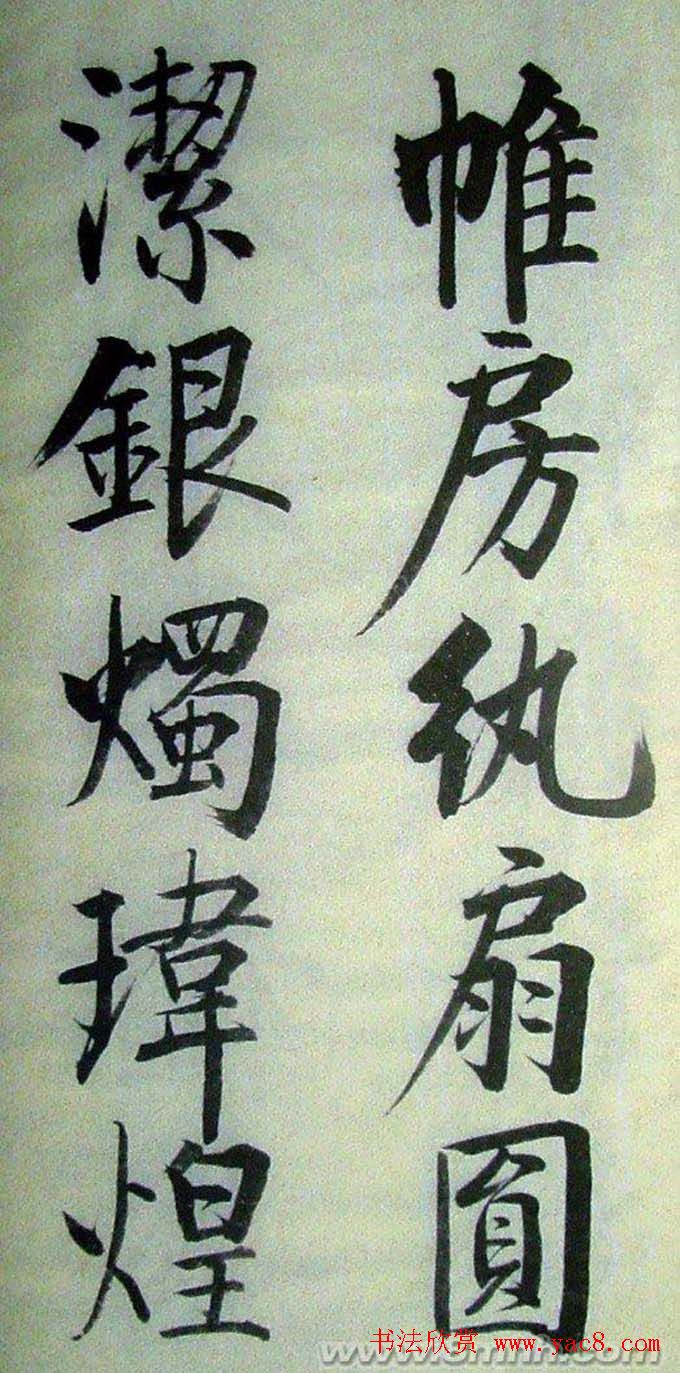 帷房紈扇圓
潔銀燭瑋煌
书法欣赏 www.yac8.com